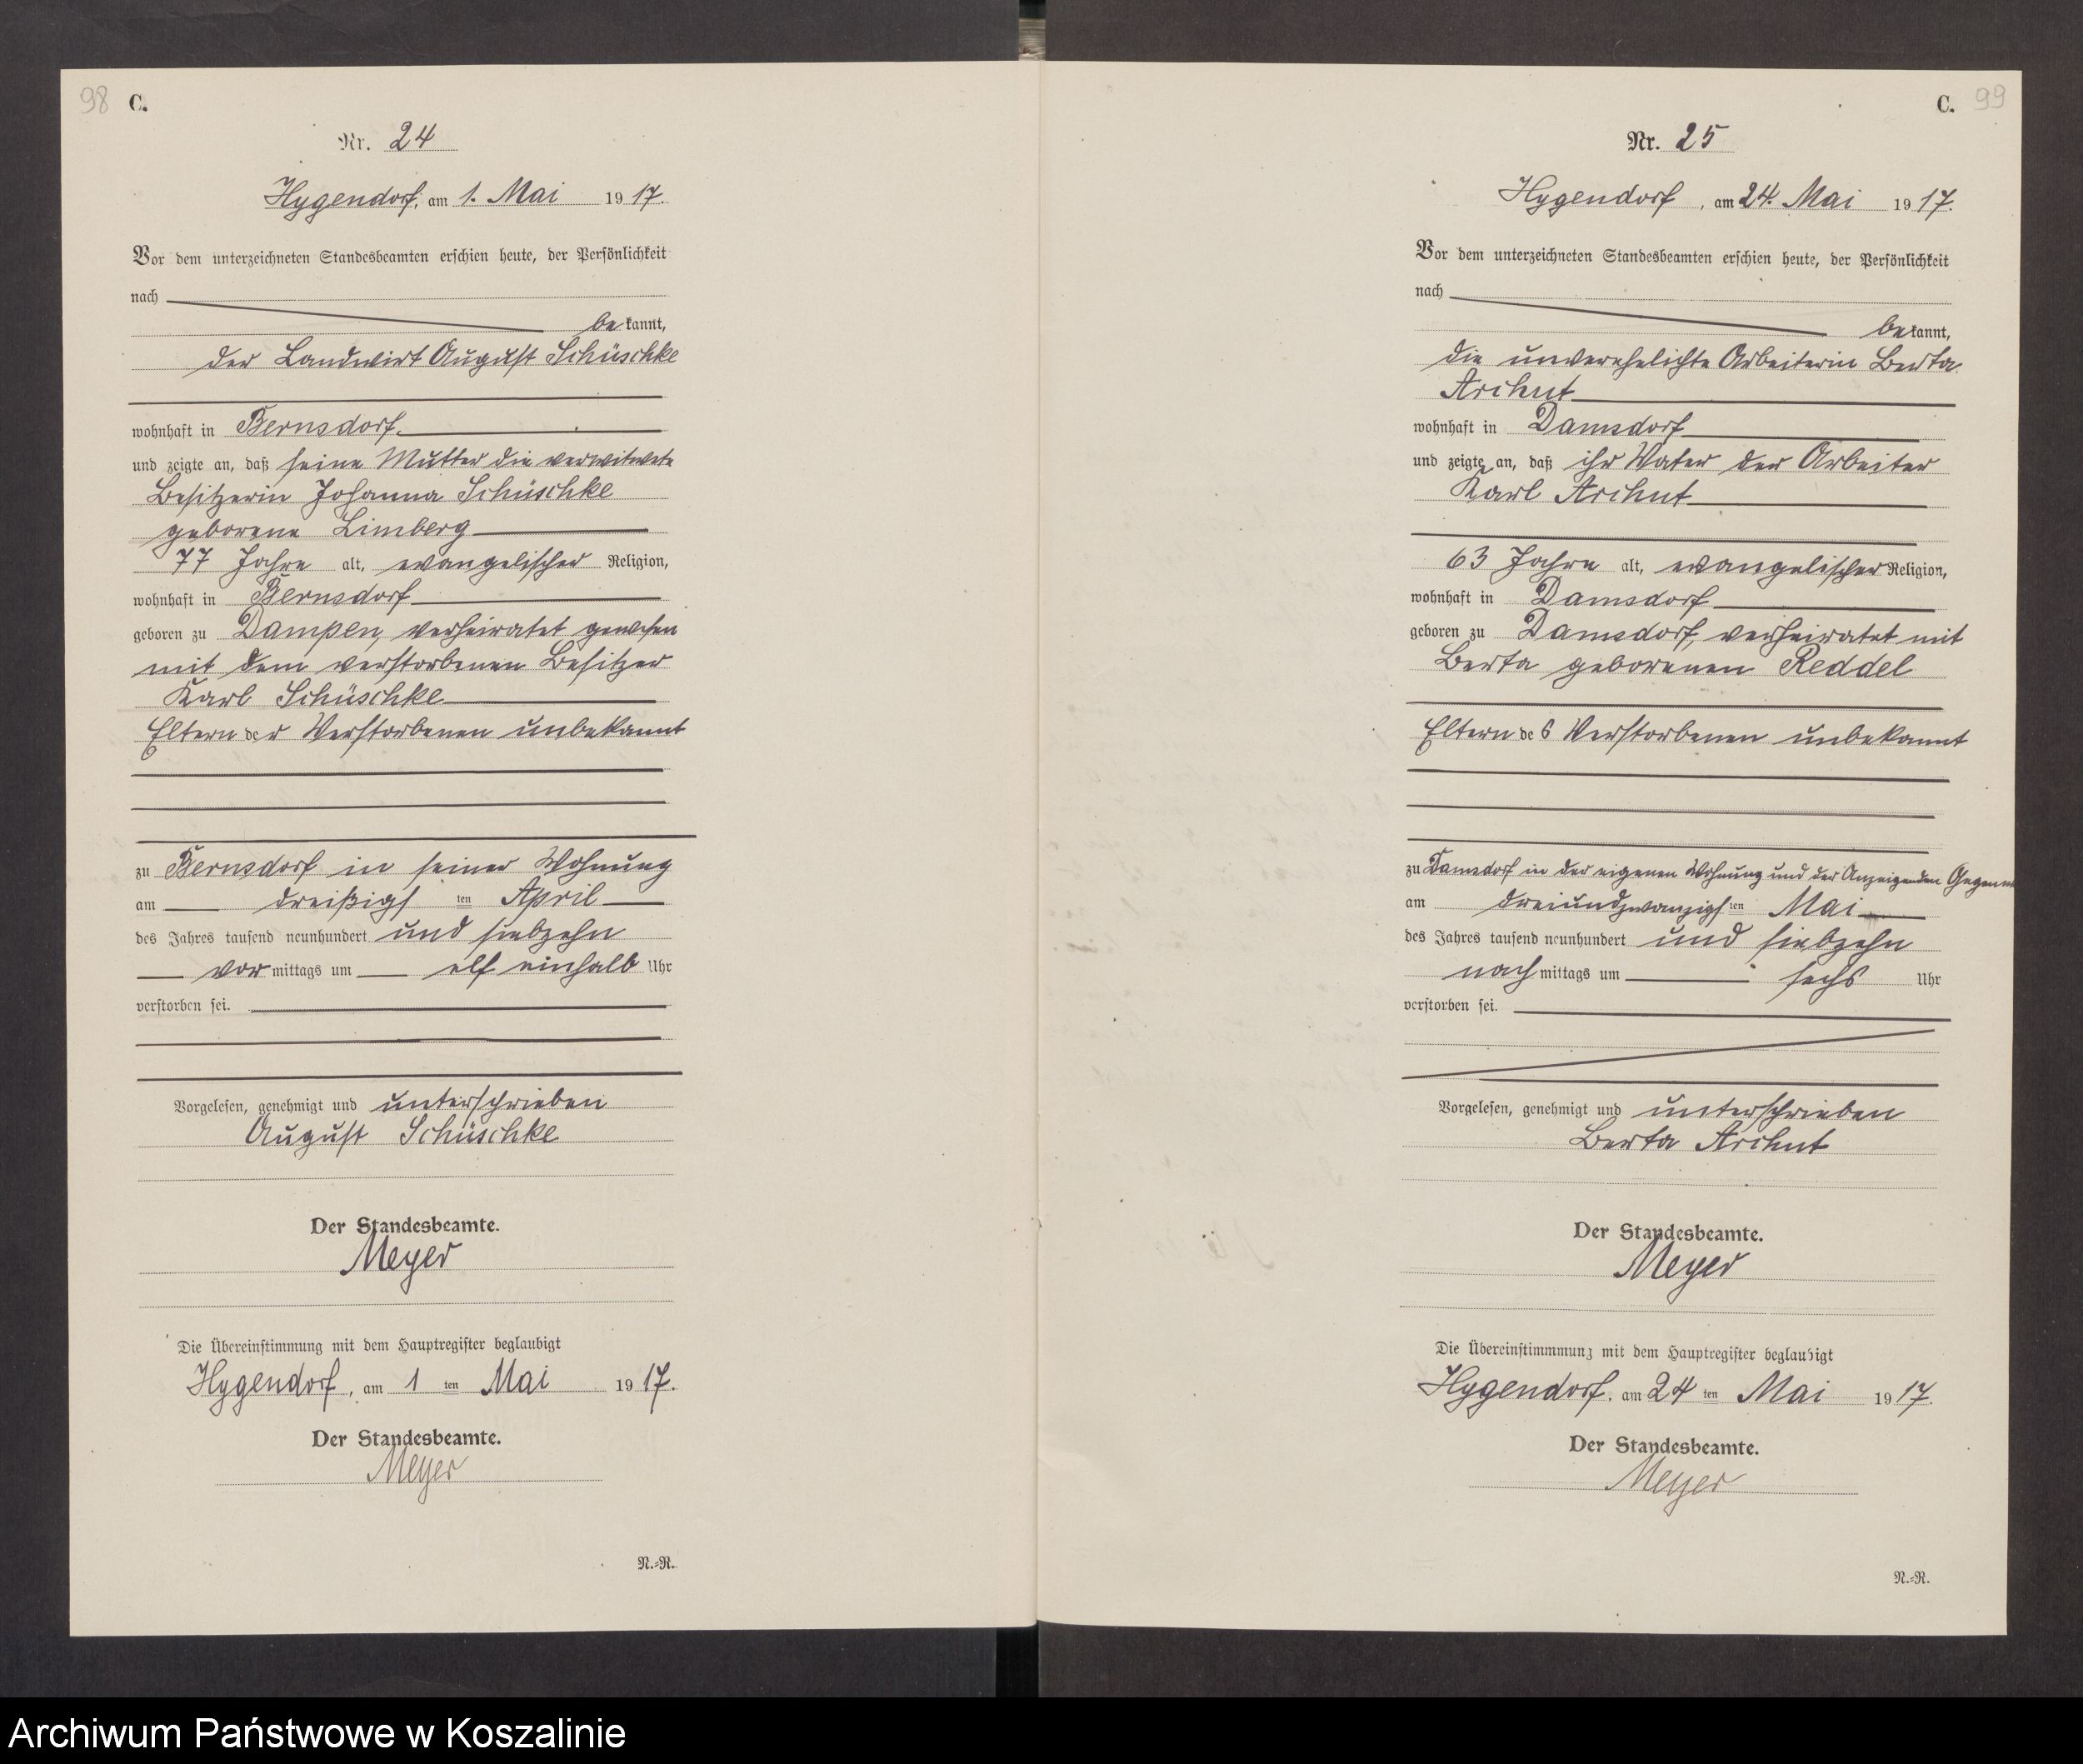 98 C.
Nr. 24
Hygendorf, am 1. Mai 1917.
Vor dem unterzeichneten Standesbeamten erschien heute, der Persönlichkeit
nach
bekannt,
der Landwirt August Schüschke
wohnhaft in Bernsdorf.
und zeigte an, daß seine Mutter die verwitwete
Besitzerin Johanna Schüschke
geborene Limberg
77 Jahre alt, evangelischer Religion,
wohnhaft in Bernsdorf
geboren zu Dampen, verheiratet gewesen
mit dem verstorbenen Besitzer
Karl Schüschke
Eltern der Verstorbenen unbekannt
zu Bernsdorf in seiner Wohnung
am dreißigsten April
des Jahres tausend neunhundert und siebzehn
vormittags um elf einhalb Uhr
verstorben sei.
Vorgelesen, genehmigt und unterschrieben
August Schüschke
Der Standesbeamte.
Meyer
Die Übereinstimmung mit dem Hauptregister beglaubigt
Hygendorf, am 1ten Mai 1917.
Der Standesbeamte.
Meyer
N.=R.
C. 99
Nr. 25
Hygendorf, am 24. Mai 1917.
Vor dem unterzeichneten Standesbeamten erschien heute, der Persönlichkeit
nach
bekannt,
die unverehelichte Arbeiterin Berta
Archut
wohnhaft in Damsdorf
und zeigte an, daß ihr Vater der Arbeiter
Karl Archut
63 Jahre alt, evangelischer Religion,
wohnhaft in Damsdorf
geboren zu Damsdorf, verheiratet mit
Berta geborenen Reddel
Eltern des Verstorbenen unbekannt
zu Damsdorf in der eigenen Wohnung und der Anzeigenden
am dreiundzwanzigsten Mai
des Jahres tausend neunhundert und siebzehn
nachmittags um sechs Uhr
verstorben sei.
Vorgelesen, genehmigt und unterschrieben
Berta Archut
Der Standesbeamte.
Meyer
Die Übereinstimmung mit dem Hauptregister beglaubigt
Hygendorf, am 24ten Mai 1917.
Der Standesbeamte.
Meyer
N.=R.
Archiwum Państwowe w Koszalinie